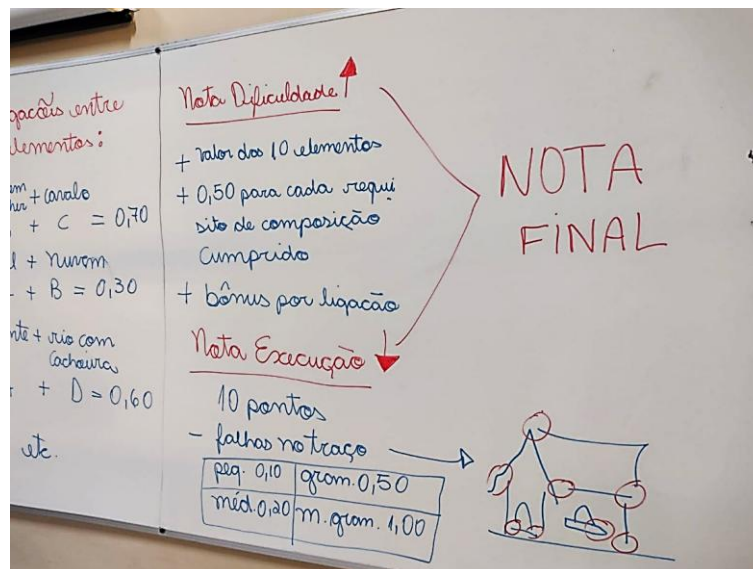 gacões entre
lementos:
+ cavalo
+ C = 0,70
+ nuvem
+ B = 0,30
nte + rio com
Cachoeira
+ D = 0,60
etc.
Nota Dificuldade
+ valor dos 10 elementos
+ 0,50 para cada requi
sito de composição
cumprido
+ bônus por ligação
Nota Execução
10 pontos
- falhas no traço
peq. 0,10 gran. 0,50
méd. 0,20 m. gran. 1,00
NOTA
FINAL